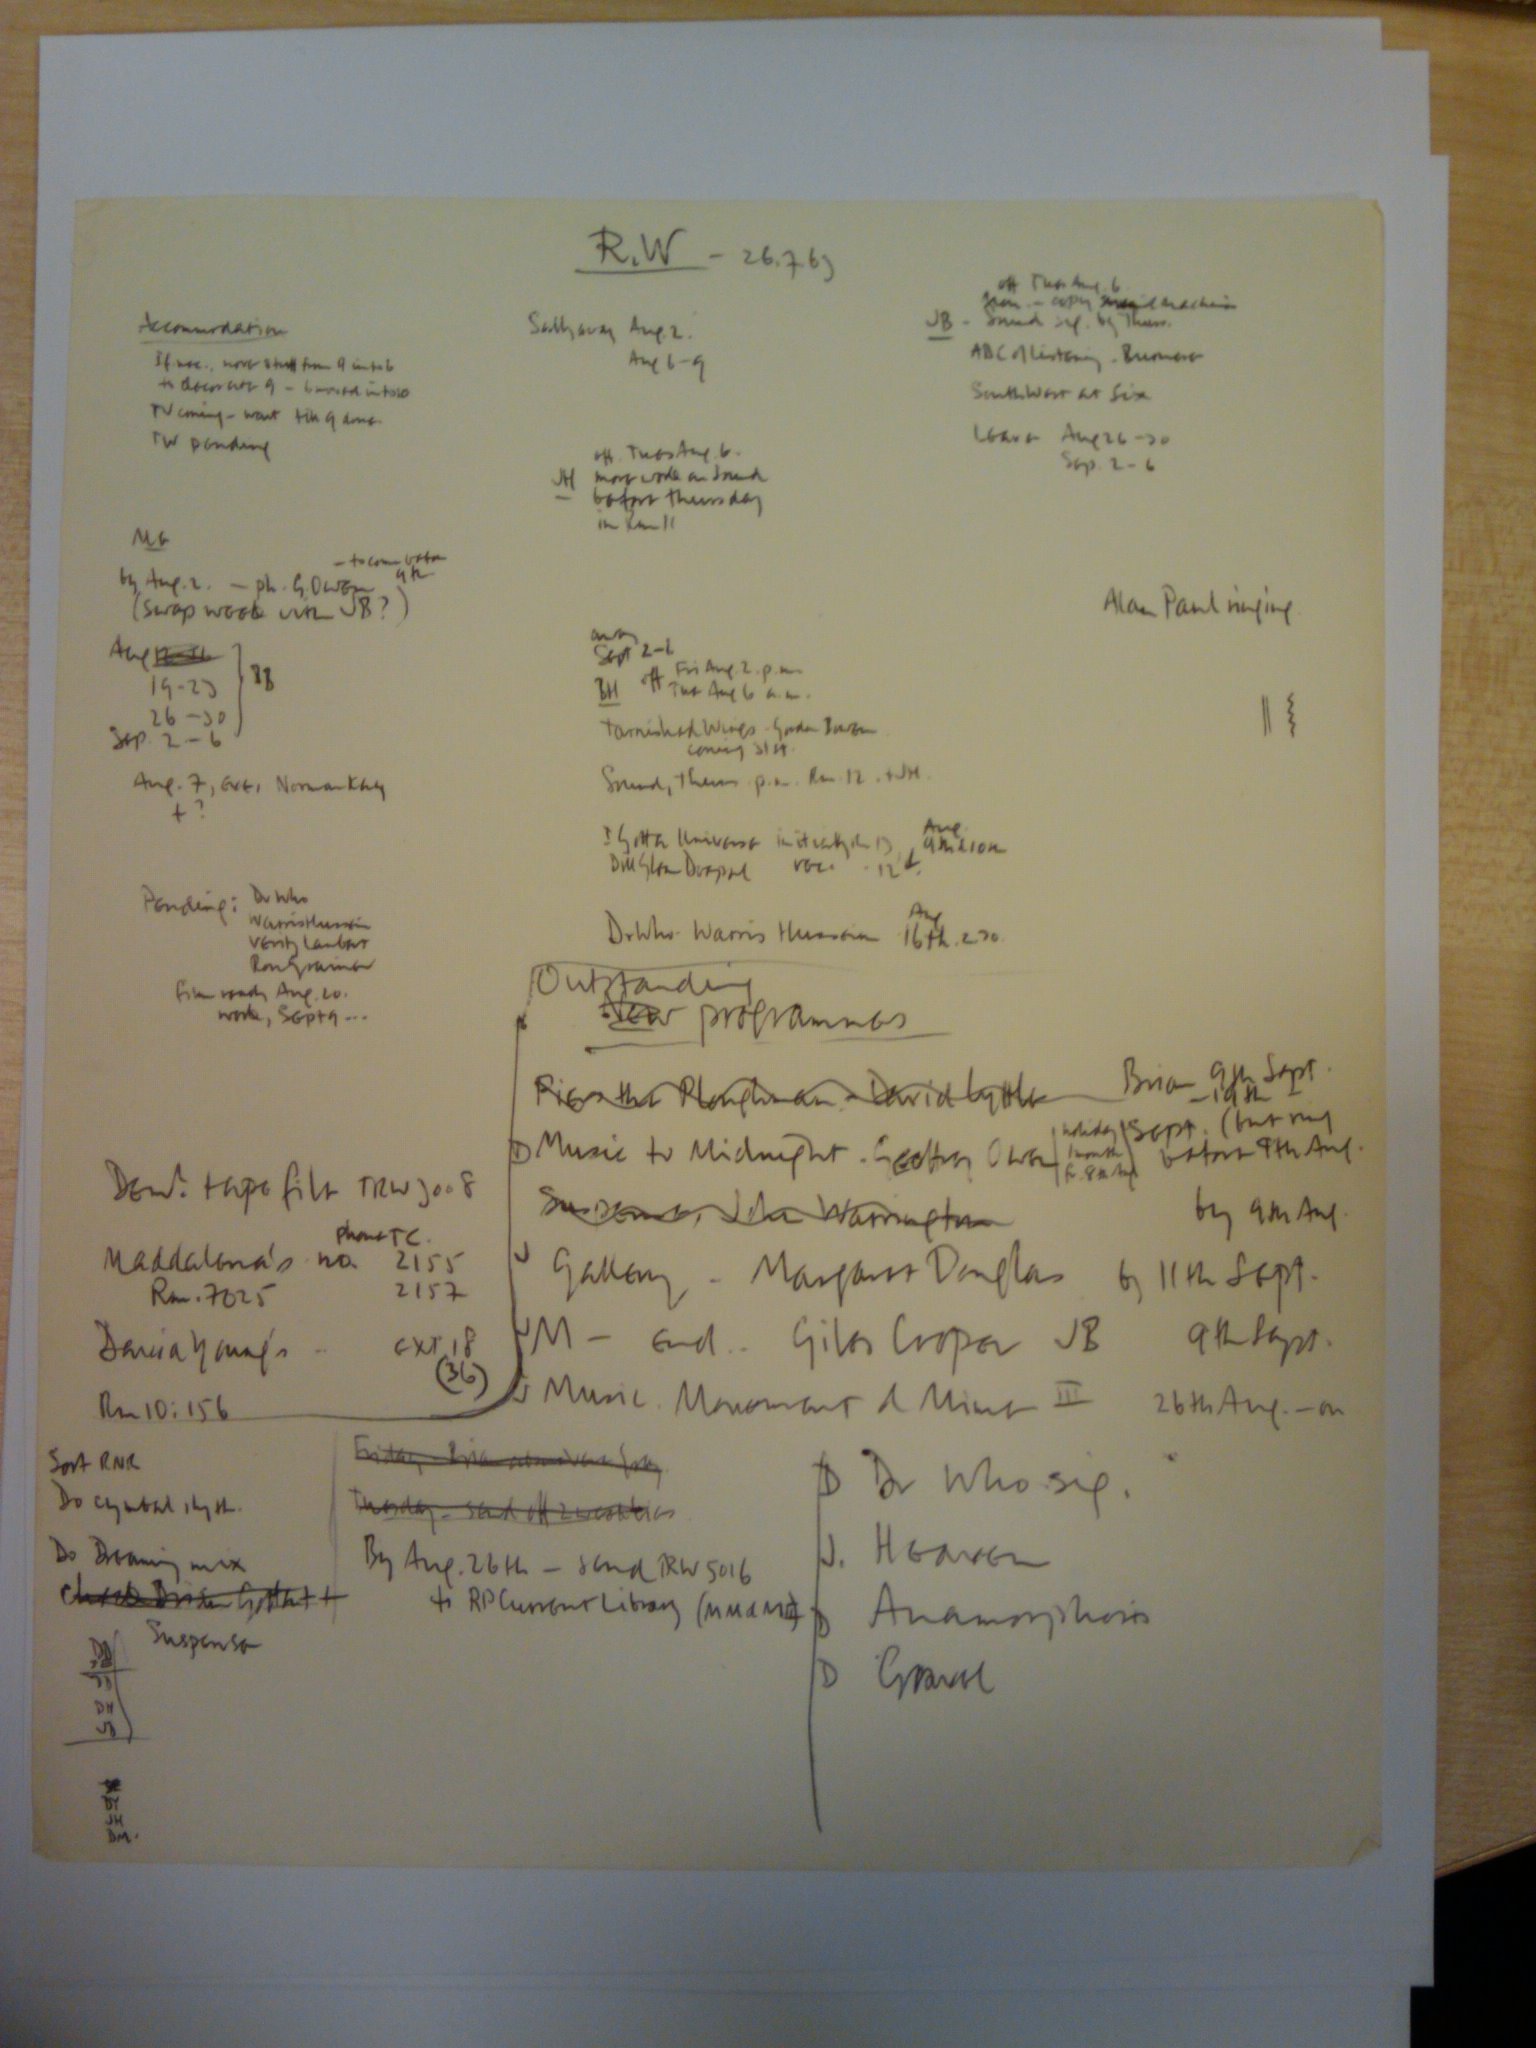 R.W - 26.7.63
Accommodation
If nec., move stuff from 9 into 6
to decorate 9 - 6 moved into 10
TV coming - want 9 done
TW pending
Aug. 2.
Aug 6-9
off Tues Aug. 6
JB - Sound sig. by Thurs.
ABC of Listening -
South West at Six
Leave Aug 26-30
Sep. 2-6
off Tues Aug. 6.
JH more work on Sound
before Thursday
in Rm 11
by Aug. 2. - ph. G. Owen
9th
(Swap week with JB?)
Aug
19-23
26-30
Sep. 2-6
Aug. 7, eve, Norman Kay
+ ?
Alan Paul ringing.
away
Sept 2-6
BH off Fri Aug. 2. p.m.
Tues Aug 6 a.m.
Tarnished Wings - Gordon
coming 31st.
Sound, Thurs p.m. Rm. 12. + JH.
I Gotta Universe initially in 13
12
Dr Who - Warris Hussein Aug 16th. 2.30.
Pending: Dr Who
Warris Hussein
Verity Lambert
Ron Grainer
Film ready Aug. 20.
work, Sept 9 ---
Outstanding
New programmes
Piers the Ploughman - David Lyttle Brian 9th Sept.
- 19th
Music to Midnight. Geoffrey Owen (holiday 1 month fr. 8th Aug) Sept. (but ring
before 9th Aug.
Suspense, John Warrington by 9th Aug.
Gallery - Margaret Douglas by 11th Sept.
M - end.. Giles Cooper JB 9th Sept.
Music. Movement & Mime III 26th Aug. - on
Dem. tape filt TRW 3008
phone TC.
Maddalena's no. 2155
Rm. 7025 2157
Young's - ext 18
(36)
Rm 10:156
Sort RNR
Do cymbal rhyth.
Do Dreaming mix
Suspense
Friday -
Tuesday - send off 2
By Aug. 26th - send TRW 5016
to RP Current Library
Dr Who sig.
Heaven
Anamorphosis
DH
JB
BY
JH
DM.